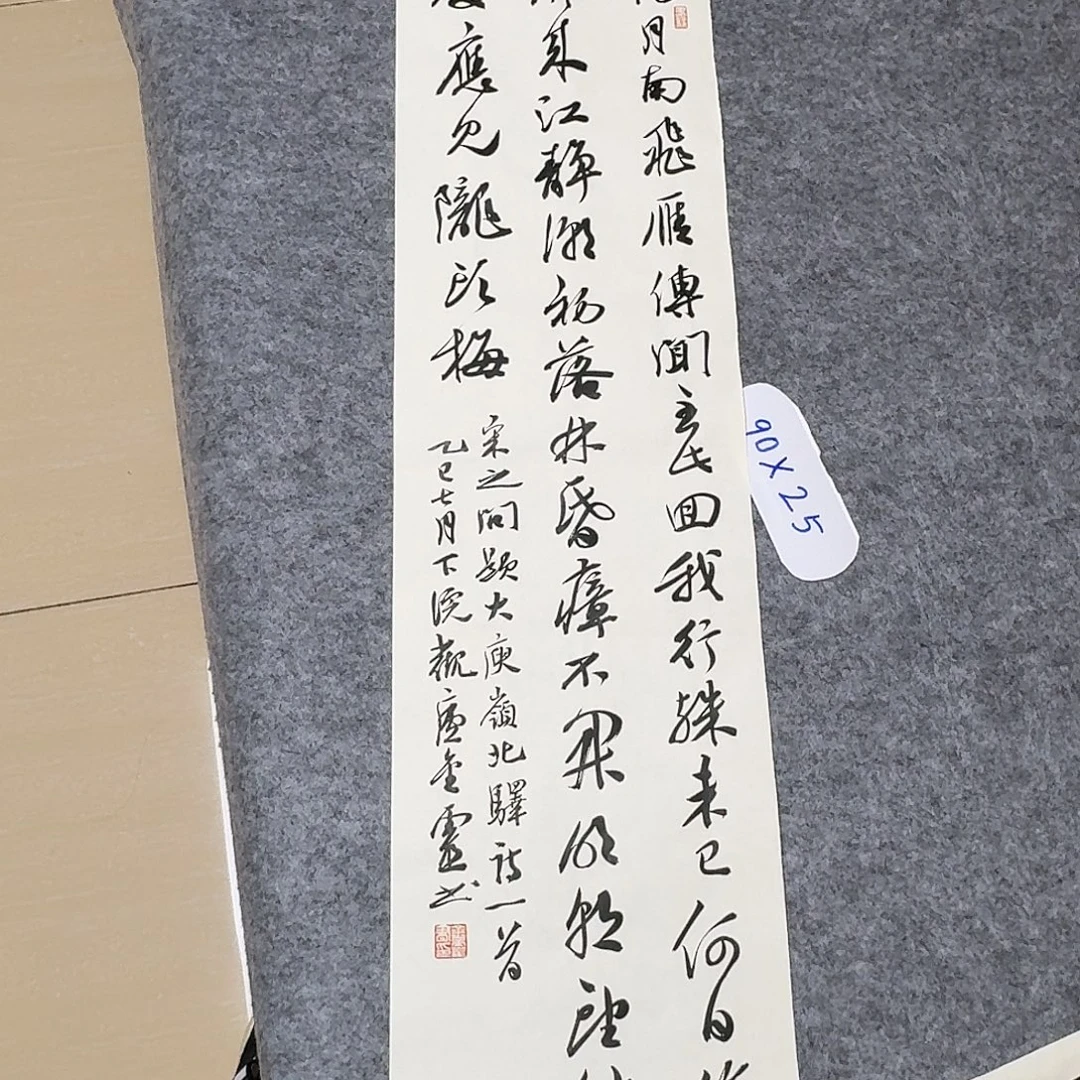 月南飛雁傳聞至此回我行殊未已何日
來江靜潮初落林昏瘴不開明朝望
應見隴頭梅
宋之問題大庾嶺北驛詩一首
乙巳七月下浣觀廬金靈書
90X25